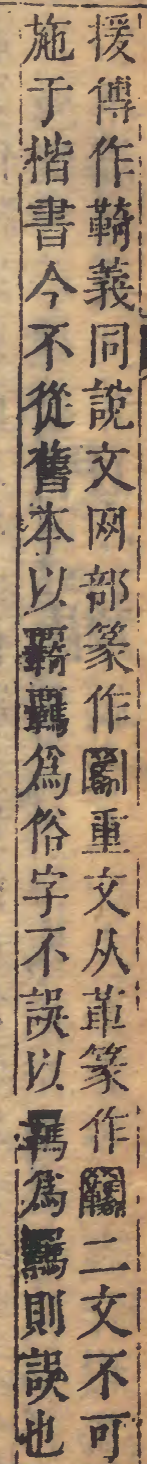 援傅作䩭義同說文网部篆作重文从革篆作二文不可
施于楷書今不從舊本以覉覊爲俗字不誤以爲則誤也